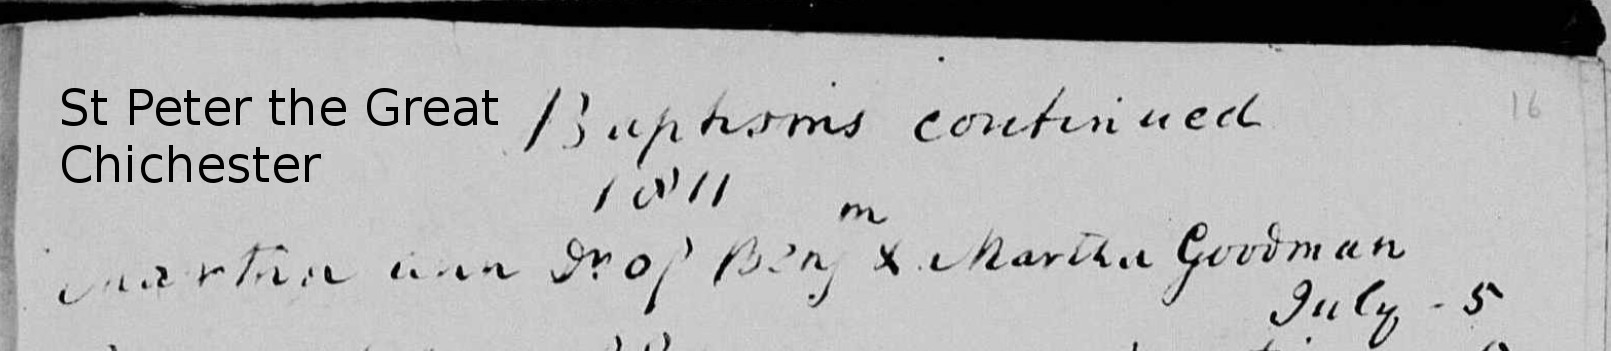 St Peter the Great
Chichester
Baptisms continued
16
1811
Martha ann Dr of Benjm & Martha Goodman
July - 5